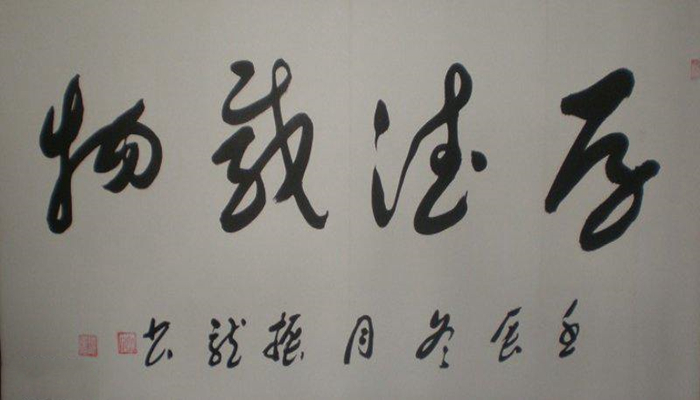 厚德载物
壬辰冬月振龙书